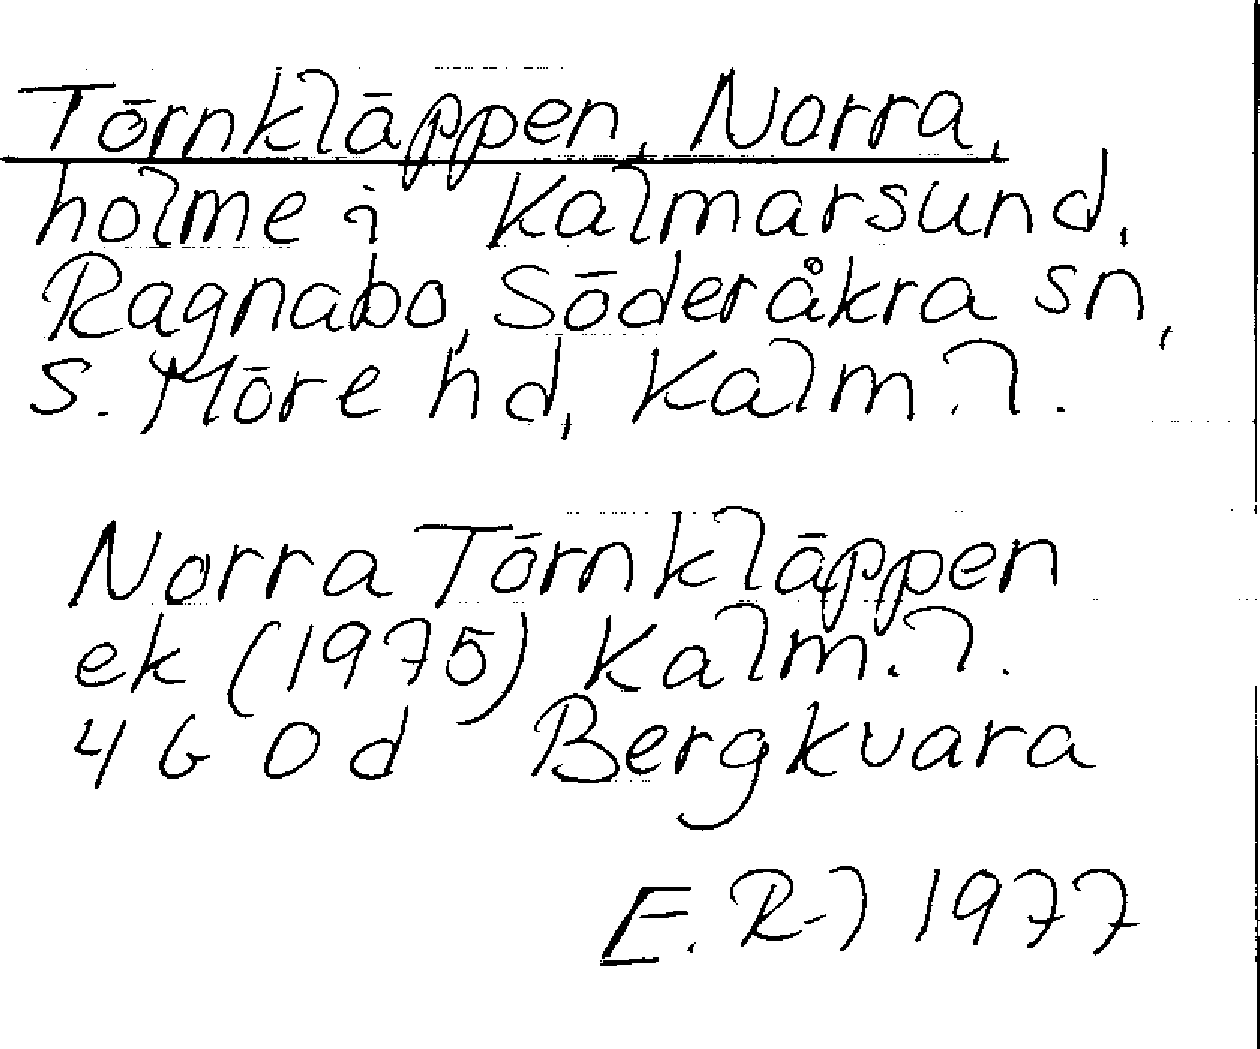 Törnkläppen, Norra,
holme i Kalmarsund,
Ragnabo, Söderåkra sn,
S. Möre hd, Kalm. l.
Norra Törnkläppen
ek (1975) Kalm. l.
4 G 0 d Bergkvara
E. R-l 1977